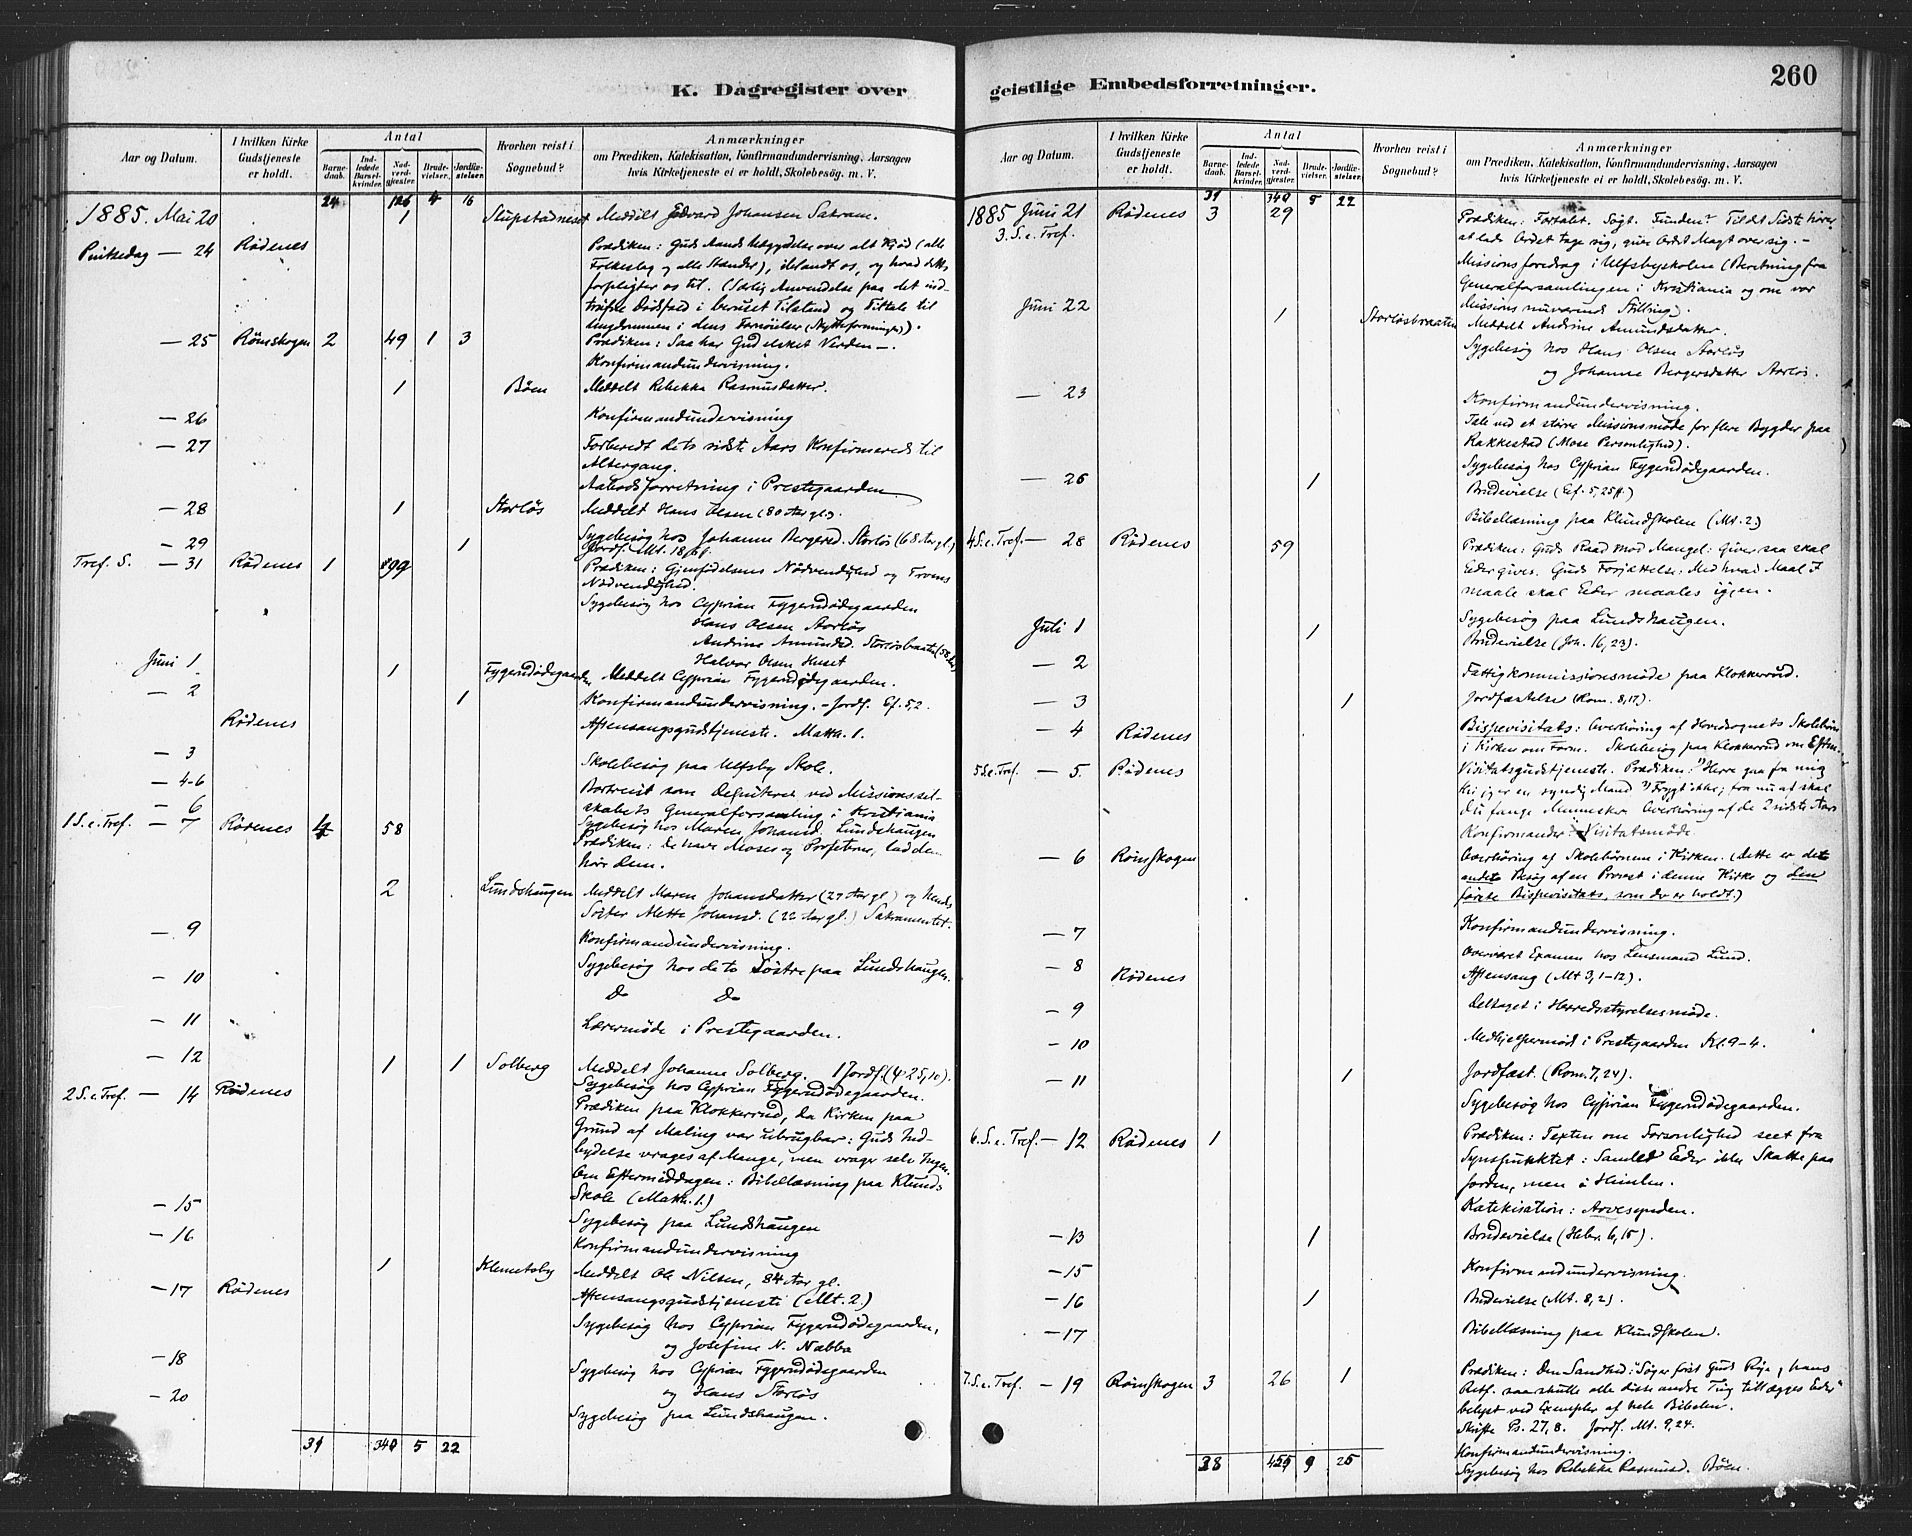 K. Dagregister over
Aar og Datum.
I hvilken Kirke Gudstjeneste er holdt.
Antal
Barne-daab.
Ind-ledede Barsel-kvinder.
Nad-verd-gjester
Brude-vielser.
Jordfæ-stelser.
Hvorhen reist i Sognebud?
Anmærkninger
om Prædiken, Katekisation, Konfirmandundervisning, Aarsagen
hvis Kirketjeneste ei er holdt, Skolebesøg, m. V.
24 126 4 16
1885. Mai 20 1 Slupstadneset Meddelt Edvard Johansen Sakram.
Pintsedag — 24 Rødenes Prædiken: Guds Aands Udgydelse over alt Kjød (alle
Folkeslag og alle Stænder), iblandt os, og hvad dette
forpligter os til. (Særlig Anvendelse paa det ind-
trufne Dødsfald i beruset Tilstand og Tiltale til
Ungdommen i dens Fornøielser
— 25 Rømskogen 2 49 1 3 Prædiken: Saa har Gud elsket Verden —.
Konfirmandundervisning.
1 Bøen Meddelt Rebekka Rasmusdatter.
— 26 Konfirmandundervisning
— 27 Forberedt det sidste Aars Konfirmerede til
Altergang.
Aabodsforretning i Prestegaarden
— 28 1 Storløs Meddelt Hans Olsen (80 Aar gl.).
— 29 1 Sygebesøg hos Johanne Bergersd. Storløs (68 Aar gl.)
Jordf. Mt. 18,
Tref. S. — 31 Rødenes 1 99 Prædiken: Gjenfødelsens Nødvendighed og Troens
Nødvendighed.
Sygebesøg hos Cyprian Fygerudødegaarden
Hans Olsen Storløs
Andrine Amundsd. Storløsbraaten (58 Aar)
Halvor Olsen Huset
Juni 1 1 Fygerudødegaarden Meddelt Cyprian Fygerudødegaarden.
— 2 1 Konfirmandundervisning. — Jordf. Ef. 5,2.
Rødenes Aftensangsgudstjeneste. Matth. 1.
— 3 Skolebesøg paa Ulfsby Skole.
— 4-6 Bortreist som Deputeret ved Missionssel-
skabets Generalforsamling i Kristiania
— 6 Sygebesøg hos Maren Johansd. Lundshaugen
1 S. e. Tref. — 7 Rødenes 4 58 Prædiken: De have Moses og Profeterne, lad dem
høre dem.
2 Lundshaugen Meddelt Maren Johansdatter (27 Aar gl.) og hendes
Søster Mette Johansd. (22 Aar gl.) Sakramentet.
— 9 Konfirmandundervisning.
Sygebesøg hos de to Søstre paa Lundshaugen.
— 10 Do Do
— 11 Lærermøde i Prestegaarden.
— 12 1 1 Solberg Meddelt Johanne Solberg. 1 Jordf.
Sygebesøg hos Cyprian Fygerudødegaarden.
2 S. e. Tref. — 14 Rødenes Prædiken paa Klokkerud, da Kirken paa
Grund af Maling var ubrugbar: Guds Ind-
bydelse vrages af Mange, men vrager selv Ingen.
Om Eftermiddagen: Bibellæsning paa Klunds
Skole (Matth. 1.)
— 15 Sygebesøg paa Lundshaugen
— 16 Konfirmandundervisning
1 Klemetsby Meddelt Ole Nilsen, 84 Aar gl.
— 17 Rødenes Aftensangsgudstjeneste (Mt. 2.)
Sygebesøg hos Cyprian Fygerudødegaarden,
og Josefine N. Nabba
— 18 Sygebesøg hos Cyprian Fygerudødegaarden
og Hans Storløs
— 20 Sygebesøg paa Lundshaugen.
31 340 5 22
geistlige Embedsforretninger.
260
Aar og Datum.
I hvilken Kirke Gudstjeneste er holdt.
Antal
Barne-daab.
Ind-ledede Barsel-kvinder.
Nad-verd-gjester
Brude-vielser.
Jordfæ-stelser.
Hvorhen reist i Sognebud?
Anmærkninger
om Prædiken, Katekisation, Konfirmandundervisning, Aarsagen
hvis Kirketjeneste ei er holdt, Skolebesøg, m. V.
31 340 5 22
1885 Juni 21 Rødenes 3 29 Prædiken: Fortabt. Søgt. Funden. Til det Sidste hører
3. S. e. Tref. at lade Ordet tage sig, give Ordet Magt over sig. —
Missionsforedrag i Ulfsbyskolen (Beretning fra
Generalforsamlingen i Kristiania og om vor
Missions nuværende Stilling).
Juni 22 1 Storløsbraaten Meddelt Andrine Amundsdatter.
Sygebesøg hos Hans Olsen Storløs
og Johanne Bergersdatter Storløs.
— 23 Konfirmandundervisning.
Tale ved et større Missionsmøde for flere Bygder paa
Rakkestad (Mose Personlighed).
Sygebesøg hos Cyprian Fygerudødegaarden.
— 26 1 Brudevielse (Ef. 5, 25 ff.)
Bibellæsning paa Klundskolen (Mt. 2.)
4 S. e. Tref. — 28 Rødenes 59 Prædiken: Guds Raad mod Mangel: Giver saa skal
Eder gives. Guds Forjættelse: Med hvad Maal I
maale skal Eder maales igjen.
Sygebesøg paa Lundshaugen.
Juli 1 1 Brudevielse (Joh. 16, 23).
— 2 Fattigkommissionsmøde paa Klokkerud.
— 3 1 Jordfæstelse (Rom. 8,17).
— 4 Rødenes Bispevisitats: Overhøring af Hovedsognets Skolebørn
i Kirken om Form. Skolebesøg paa Klokkerud om Efterm.
5 S. e. Tref. — 5. Rødenes Visitatsgudstjeneste. Prædiken: 1) Herre gaa fra mig
thi jeg er en syndig Mand 2) Frygt ikke; fra nu af skal
du fange Mennesker. Overhøring af de 2 sidste Aars
Konfirmander. Visitatsmøde.
— 6 Rømskogen Overhøring af Skolebørnene i Kirken. (Dette er det
andet Besøg af en Provst i denne Kirke og den
første Bispevisitats, som der er holdt.)
— 7 Konfirmandundervisning.
— 8 Overværet Examen hos Lensmand Lund.
Rødenes Aftensang (Mt 3, 1-12).
— 9 Deltaget i Herredsstyrelsesmøde.
— 10 Medhjelpermøde i Prestegaarden Kl. 9-4.
— 11 1 Jordfæst. (Rom. 7, 24).
Sygebesøg hos Cyprian Fygerudødegaarden.
6. S. e. Tref. — 12 Rødenes 1 Prædiken: Texten om Forsonlighed seet fra
Synspunktet: Samled Eder ikke Skatte paa
Jorden, men i Himlen.
Katekisation: Arvesynden.
— 13 1 Brudevielse (Hebr. 6, 15).
— 15 Konfirmandundervisning.
— 16 1 Brudevielse (Mt. 8, 2).
— 17 Bibellæsning paa Klundskolen.
7. S. e. Tref. — 19 Rømskogen 3 26 1 Prædiken: Den Sandhed: "Søger først Guds Rige, hans
Retf. saa skulle alle disse andre Ting tillægges Eder"
belyst ved Exempler af hele Bibelen.
Skrifte Ps. 27, 8. Jordf. Mt. 9, 24.
Konfirmandundervisning.
Sygebesøg hos Rebekka Rasmusd. Bøen.
38 455 9 25